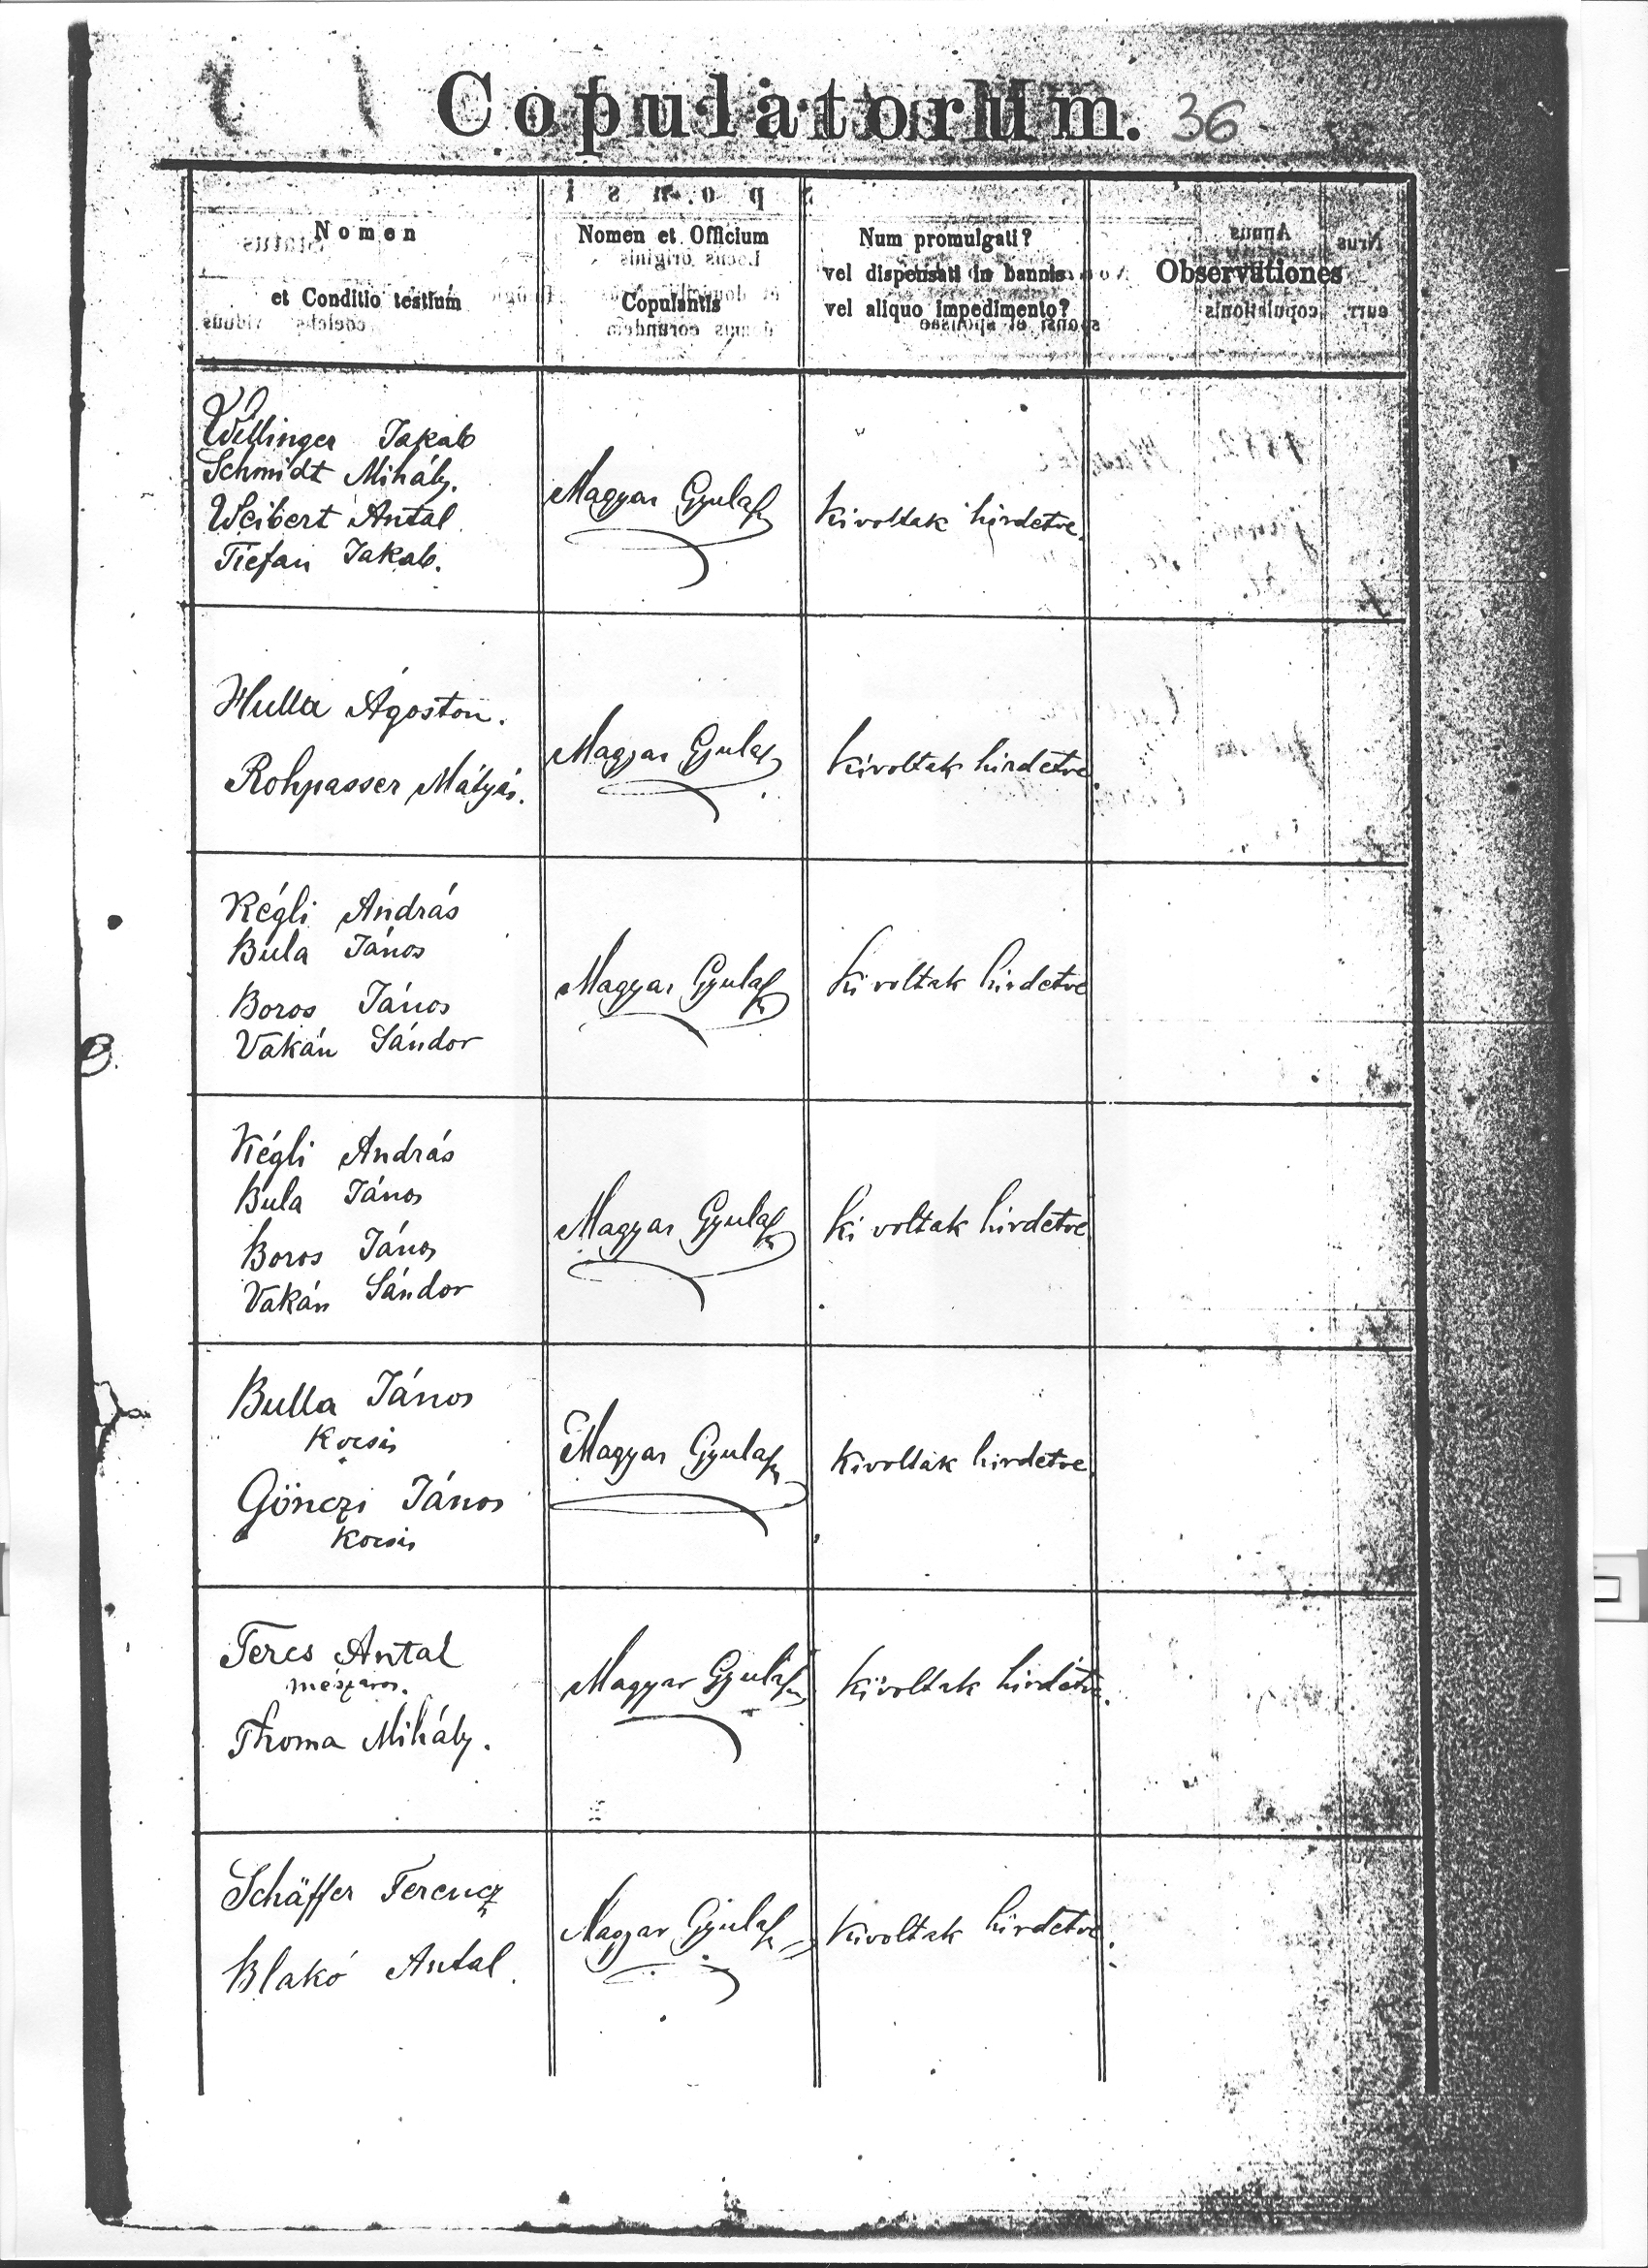 Copulatorum. 36
Nomen
et Conditio testium
Nomen et Officium
Copulantis
Num promulgati?
vel dispensati in bannis
vel aliquo impedimento?
Observationes
Willinger Jakab
Schmidt Mihály.
Weibert Antal
Tiefan Jakab.
Magyar Gyula
kivoltak hirdetve.
Hulla Ágoston.
Rohpasser Mátyás.
Magyar Gyula
kivoltak hirdetve.
Kégli András
Bula János
Boros János
Vakán Sándor
Magyar Gyula
ki voltak hirdetve
Kégli András
Bula János
Boros János
Vakán Sándor
Magyar Gyula
ki voltak hirdetve
Bulla János
Kocsis
Gönczi János
Kocsis
Magyar Gyula
kivoltak hirdetve.
Teres Antal
mészáros.
Thoma Mihály.
Magyar Gyula
kivoltak hirdetve.
Schäffer Ferencz
Blakó Antal.
Magyar Gyula
kivoltak hirdetve.